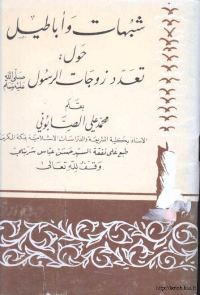 شبهات وأباطيل
حول:
تعدد زوجات الرسول ﷺ
بقلم
محمد علي الصابوني
الأستاذ بكلية الشريعة والدراسات الإسلامية بمكة المكرمة
طبع على نفقة السيد حسن عباس شربتلي
وقف لله تعالى